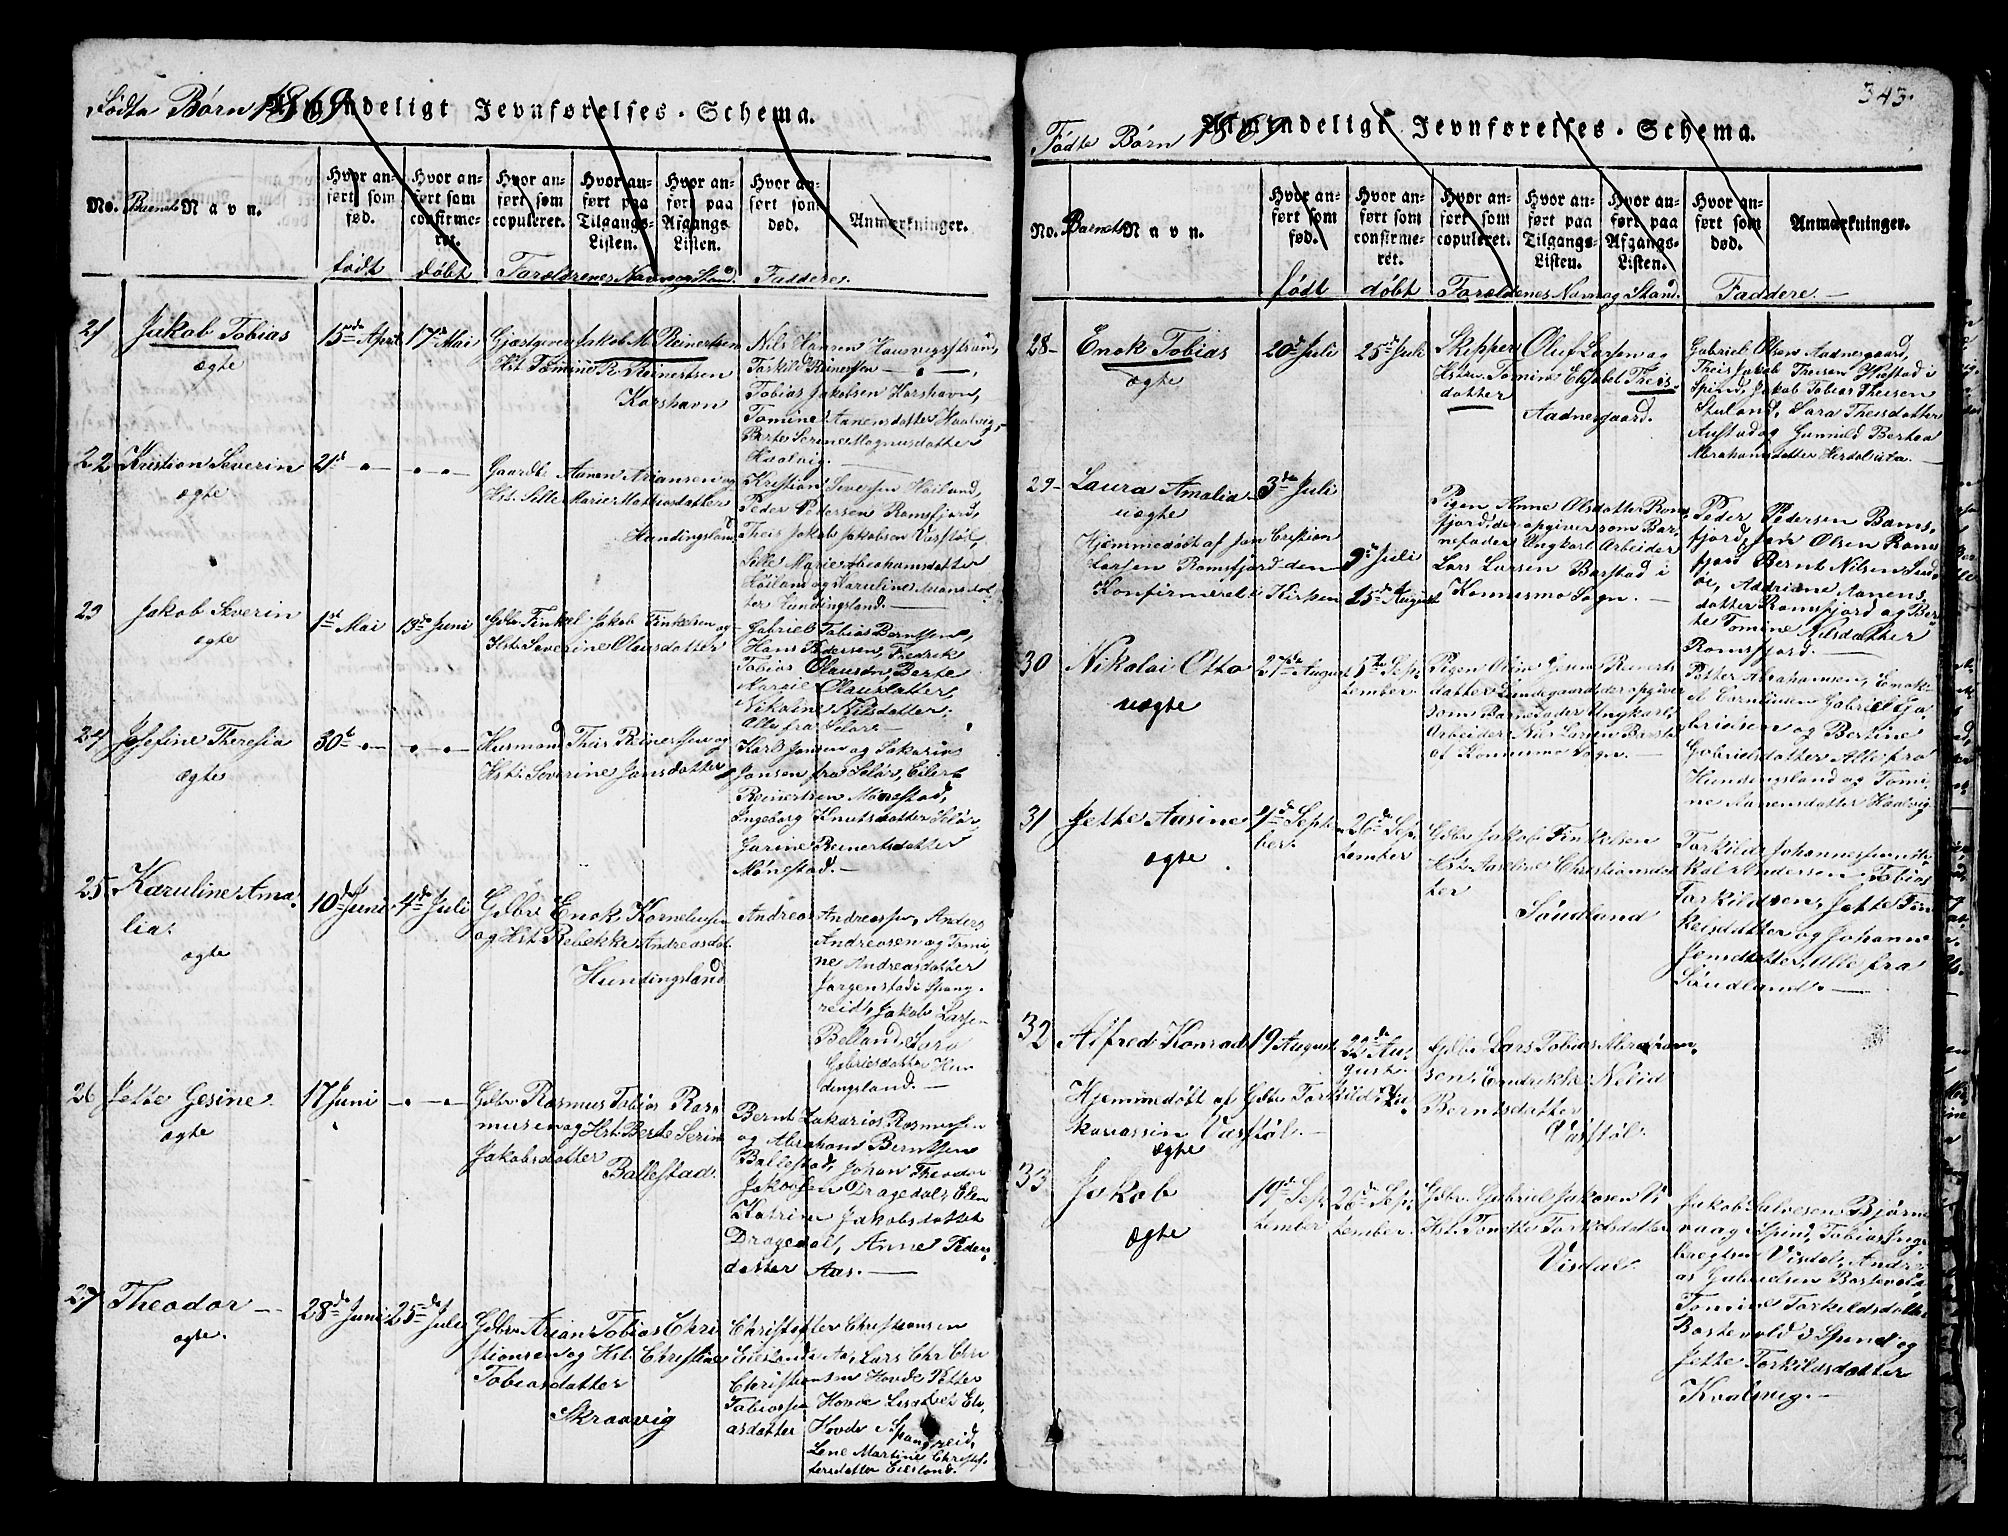 Fødte Børn 1869
Almindeligt Jevnførelses-Schema.
No. Barnets Navn.
Hvor anført som fød.
Hvor anført som confirmeret.
Hvor anført som copuleret.
Hvor anført paa Tilgangs-Listen.
Hvor anført paa Afgangs Listen.
Hvor anført som død.
Anmærkninger.
født døbt Forældrenes Navn og Stand. Faddere.
21 Jakob Tobias ægte
15de April 17de Mai
Gjæstgiver Jakob M. Reinertsen
Hst. Tomine R. Reinertsen
Korshavn
Nils Hansen
Tobias Jakobsen Korshavn,
Tomine Aanensdatter Haalvig,
Berte Serine Magnusdatter
Haalvig.
22 Kristian Severin ægte
21de
Gaardb. Aanen Ariansen og
Hst. Sille Marie Mathiasdatter
Hundingsland
Kristian Seversen Høiland,
Peder Pedersen Ramsfjord,
Theis Jakob Jakobsen Vasstøl,
Sille Marie Abrahamsdatter
Høiland og Karuline Aanensdat-
ter Hundingsland.
23 Jakob Severin ægte
1ste Mai 13de Juni
Gdbr. Finkel Jakob Finkelsen og
Hst. Severine Olausdatter
Gabriel Tobias Berntsen,
Hans Pedersen, Fredrik
Tobias Olausen, Berte
Marie Olausdatter,
Nikoline Nilsdatter,
Alle fra Selør.
24 Josefine Theresia ægte
30te
Husmand Theis Reinertsen og
Hst. Severine Jansdatter
Karl Jansen og Sakarias
Jansen fra Selør, Eilert
Reinertsen Mønestad,
Ingeborg Knutsdatter Selør,
Gurine Reinertsdatter
Mønestad.
25. Karuline Ama-
lia. ægte
10de Juni 4de Juli
Gdbr. Enok Korneliussen
og Hst. Rebekke Andreasdat.
Hundingsland
Andreas Andreassen, Anders
Andreasen og Tomi-
ne Andreasdatter
Jørgenstad i Spang-
reid, Jakob Larsen
Belland, Sara
Gabrielsdatter Hun-
dingsland.
26 Jette Gesine. ægte
17 Juni
Gdbr. Rasmus Tobias Ras-
musen og Hst. Berte Serine
Jakobsdatter
Ballestad.
Bernt Zakarias Rasmussen
og Abraham Berntsen
Ballestad, Johan Theodor
Jakobsen Dragedal, Elen
Katrine Jakobsdatter
Dragedal, Anne Peders-
datter Aas.
27 Theodor ægte.
28de Juni 25de Juli
Gdbr. Arian Tobias Chri
stiansen og Hst. Christine
Tobiasdatter
Skraavig
Christoffer Christiansen
Christiansen Hovde Petter
Tobiassen Hovde Lisabet Eli-
asdatter Hovde i Spangreid,
Lene Martine Christof-
fersdatter Eilesland.
343.
Fødte Børn 1869
Almindeligt Jevnførelses-Schema.
No. Barnets Navn.
Hvor anført som fød.
Hvor anført som confirmeret.
Hvor anført som copuleret.
Hvor anført paa Tilgangs-Listen.
Hvor anført paa Afgangs-Listen.
Hvor anført som død.
Anmærkninger.
født døbt Forældrenes Navn og Stand. Faddere.
28 Enok Tobias ægte
20de Juli 25de Juli
Skipper Oluf Larsen og
Hstru Tomine Elisabet Theis-
datter
Aadnesgaard.
Gabriel Olsen Aadnesgaard,
Theis Jakob Theisen
Spind, Jakob Tobias Theisen
Stuland, Sara Theisdatter
og Gunnild Bertea
Abrahamsdatter
29 Laura Amalia uægte
3de Juli
Hjemmedøbt af Jan Cristian
Larsen Ramsfjord den 9de Juli
Konfirmeret i Kirken 15de August
Pigen Anne Olsdatter Rams-
fjord, der opgiver som Bar-
nefader Ungkarl Arbeider
Lars Larsen Barstad i
Konnesmo Sogn.
Peder Pedersen Rams-
fjord, Jan Olsen Rams
fjord Bernt Nilsen
Adriane Aanens-
datter Ramsfjord og Ber-
te Tomine Nilsdatter
Ramsfjord.
30 Nikolai Otto uægte
27de August 5te Sep-
tember
Pigen Oline Reinerts
datter Lundegaard, der opgiver
som Barnefader Ungkarl,
Arbeider Nils Larsen
af Konnesmo Sogn.
Petter Abrahamsen, Enok
Gabriel Ga-
brielsen og Bertine
Gabrielsdatter Alle fra
Hundingsland og Tomi-
ne Aanensdatter Haalvig
31 Jette Ausine ægte
4de Septem
ber. 26de Sep-
tember
Gdbr. Jakob Finkelsen
Hst. Aseline Christiansdat-
ter
Søndland
Torkild Johannessen
Andersen, Tobias
Torkildsen, Jette Fin-
kelsdatter og Johanne
Jensdatter, Alle fra
Søndland.
32 Alfred Konrad
19 August 22de Au-
gust.
Hjemmedøbt af Gdbr. Torkild
Vasstøl.
ægte
Gdbr. Lars Tobias Abraham-
sen, Endrikke
Berntsdatter
Vasstøl.
33 Jakob ægte
19de Sep-
tember 26de Sep-
tember.
Gdbr. Gabriel Jakobsen
Hst. Tomette Torkildsdatter
Visdal.
Jakob Salvesen Bjørne
vaag i Spind, Tobias Inge
bregtsen Visdal, Andre-
as Gabrielsen Bastevold
Tomine Torkildsdatter
Bastevold i Spind og
Jette Torkildsdatter
Kvalvig.